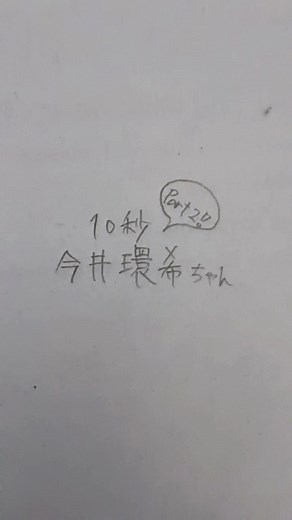 Part 2い
10秒
今井環希ちゃん